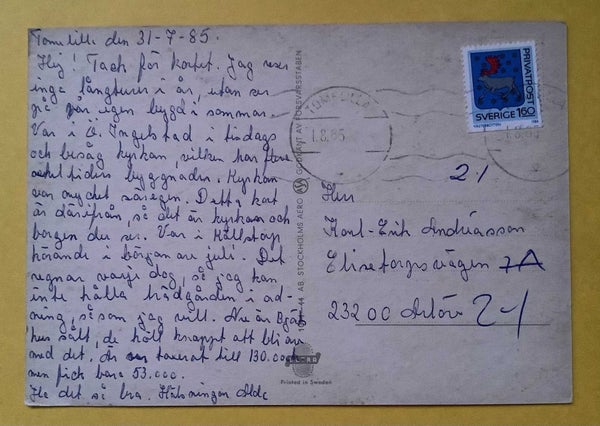 Tomelilla den 31-7-85.
Hej! Tack för kortet. Jag reser
inga långturer i år, utan ser
på vår egen bygd i sommar.
Var i Ö. Ingelstad i tisdags
och besåg kyrkan, vilken har flera
tiders byggnader. Kyrkan
var mycket säregen. Detta kort
är därifrån, så det är kyrkan och
borgen du ser. Var i Kållstorp
hörande i början av juli. Det
regnar varje dag, så jag kan
inte hålla trädgården i ord-
ning, så som jag vill. Nu är
hus sålt, de höll knappt att bli av
med det. Är taxerat till 130.000
men fick bara 53.000.
Ha det så bra. Hälsningar
1044 AB. STOCKHOLMS AERO GODKÄNT AV FÖRSVARSSTABEN
Printed in Sweden
TOMELILLA
1.8.85
PRIVATPOST
SVERIGE 1.60
2.1
Herr
Karl-Erik Andréasson
Elisetorpsvägen 7A
232 00 Arlöv 2-1